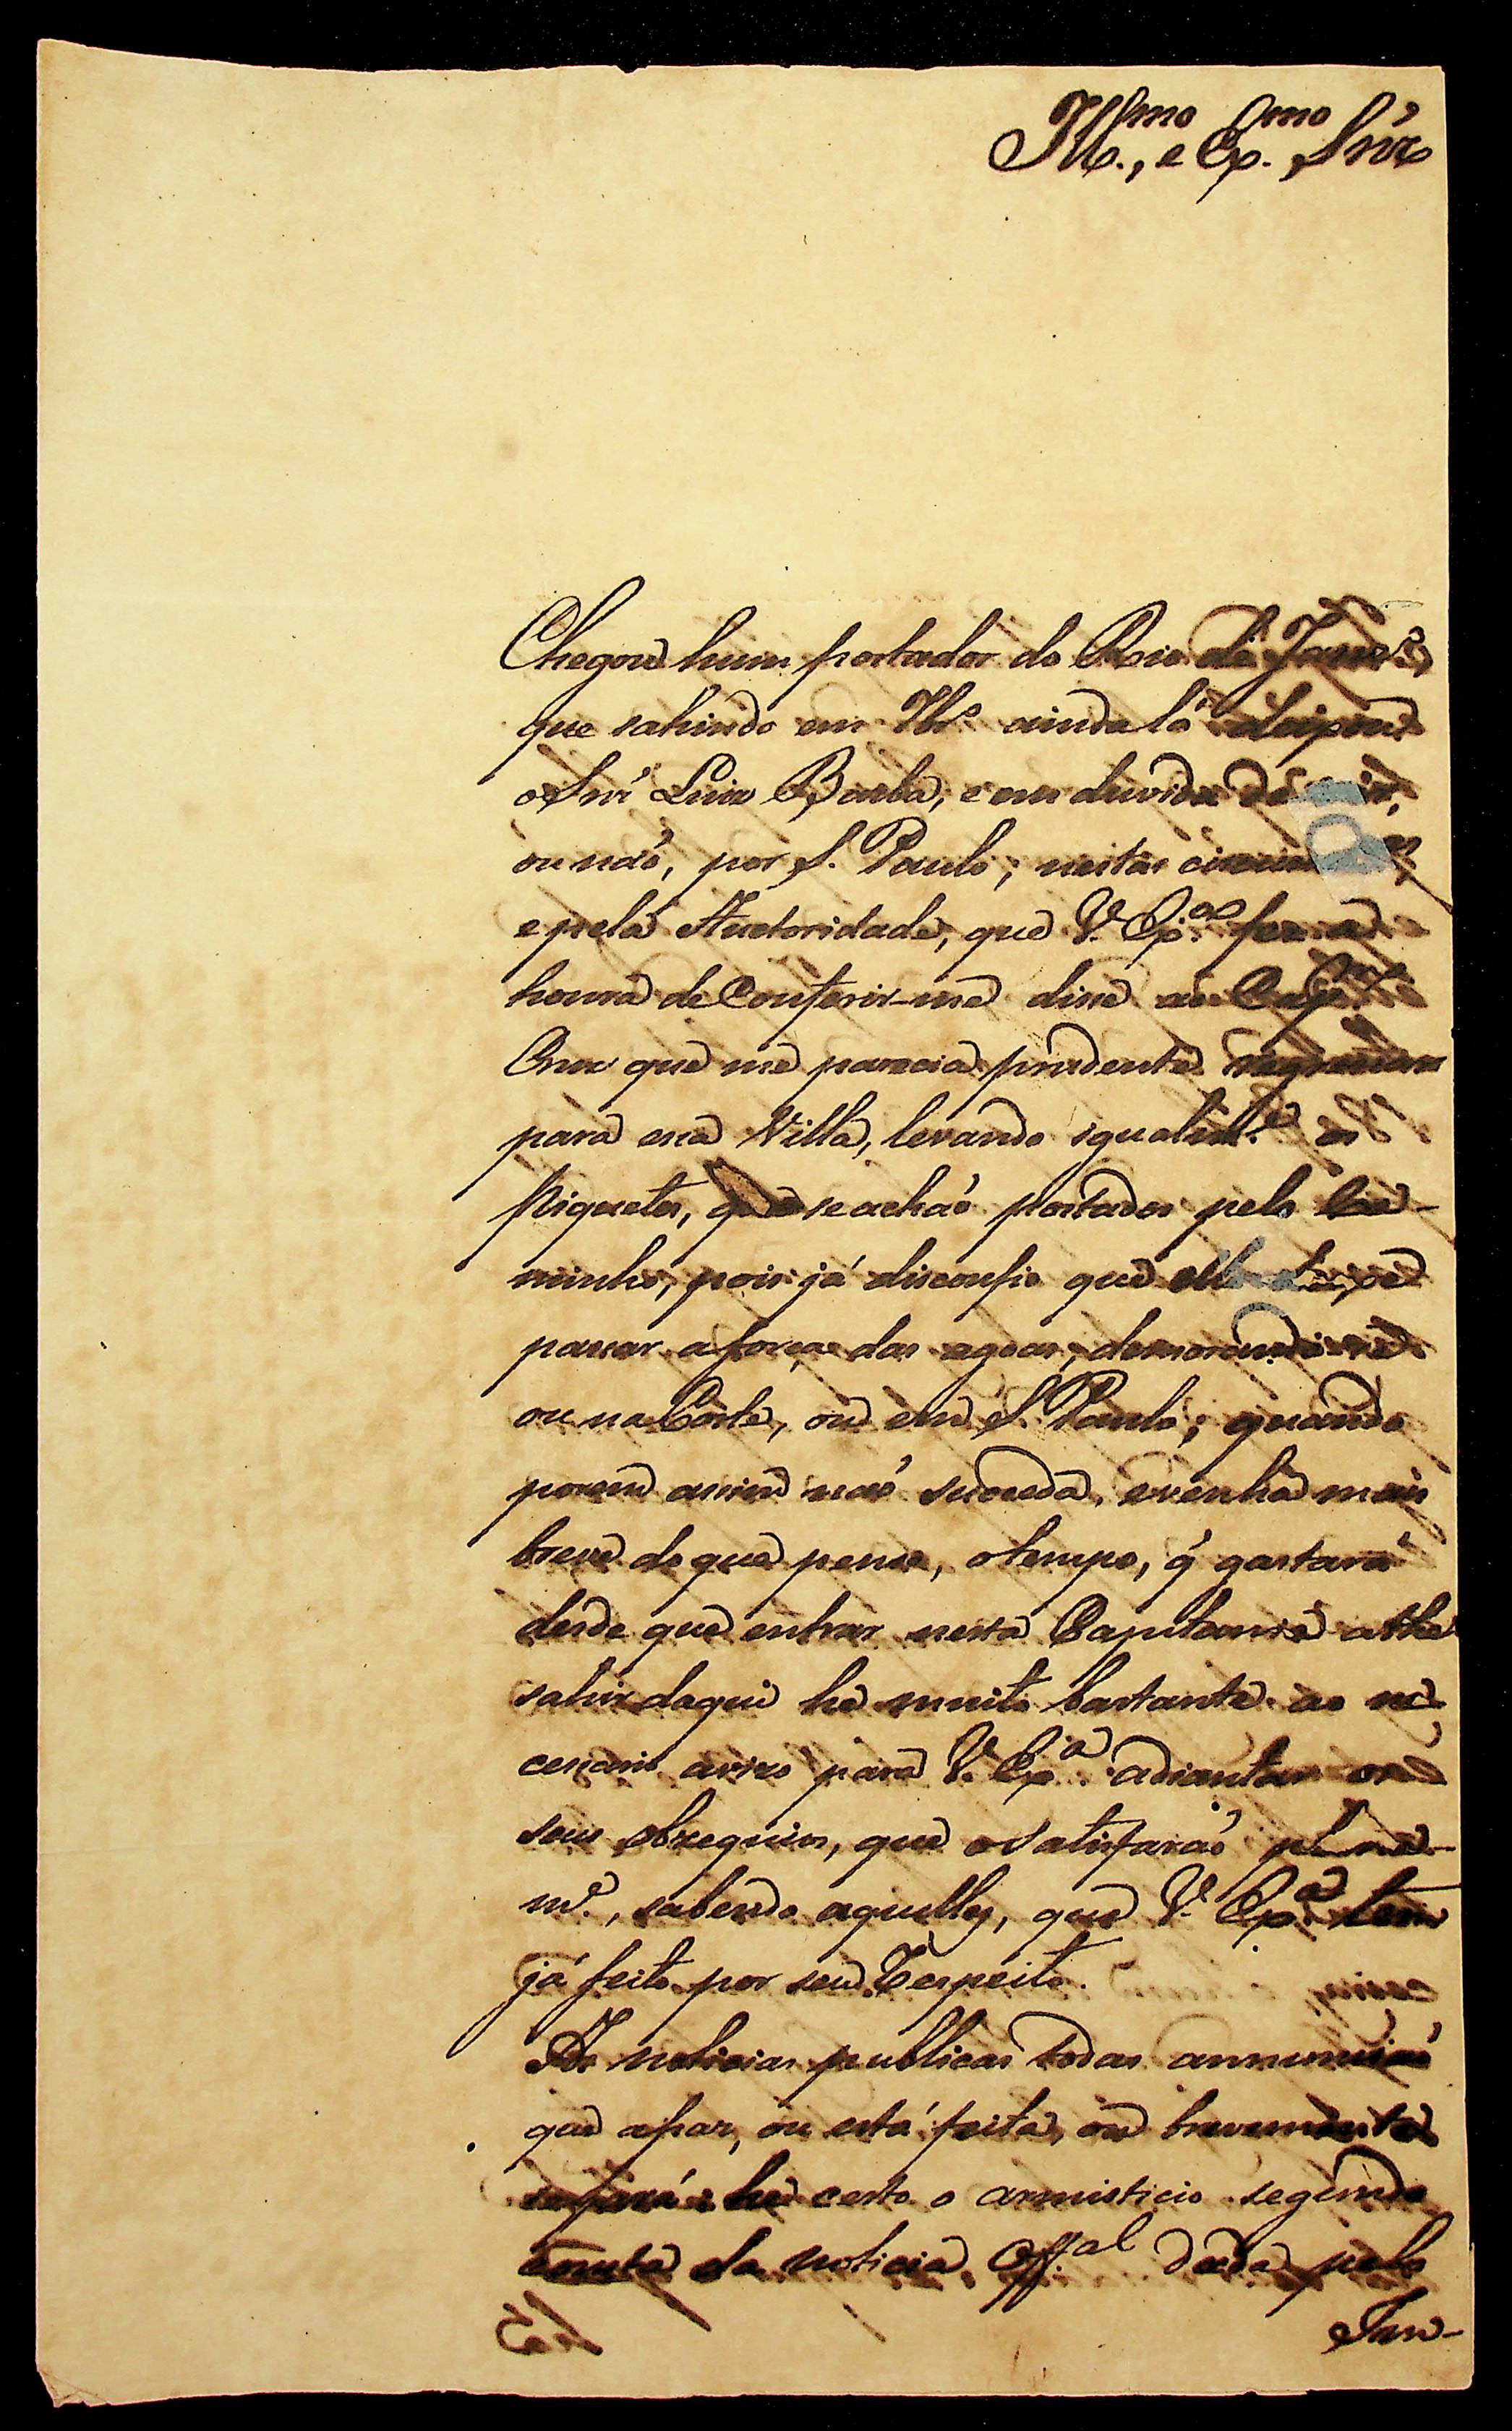 Ill.mo, e Ex.mo Snr̃
Chegou hum portador do Rio de Janr.o,
que sahindo em 7br.o ainda lá deixou
o Snr̃ Luiz Barba, e em duvida de vir,
ou não, por S. Paulo; nestas
e pela Authoridade, que V. Ex.a fez a
honra de Conferir-me disse ao Cap.m
Cruz que me parecia prudente regressar
para essa Villa, levando igualm.e os
Piquetes, que se achão postados pelo Ca-
minho, pois já disconfio que elle deixe
passar a força das agoas, demorando-se
ou na Côrte, ou em S. Paulo; quando
porem assim não suceda, e venha mais
breve do que penso, o tempo, q̃ gastará
desde que entrar nesta Capitania athe
sahir daqui he muito bastante ao ne-
cessario avizo para V. Ex.a adiantar os
seus obzequios, que o satisfarão plena-
m.e, sabendo aquelles, que V. Ex.a tem
já feito por seu respeito.
As noticias publicas todas annuncião
que a paz, ou está feita, ou brevemente
se fará: he certo o armisticio segundo
consta da noticia Off.al dada pelo
Jun-